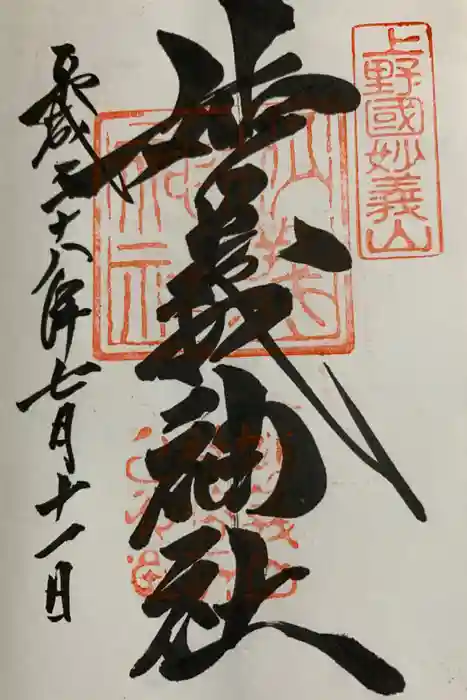 上野國妙義山
妙義神社
平成二十八年七月十一日